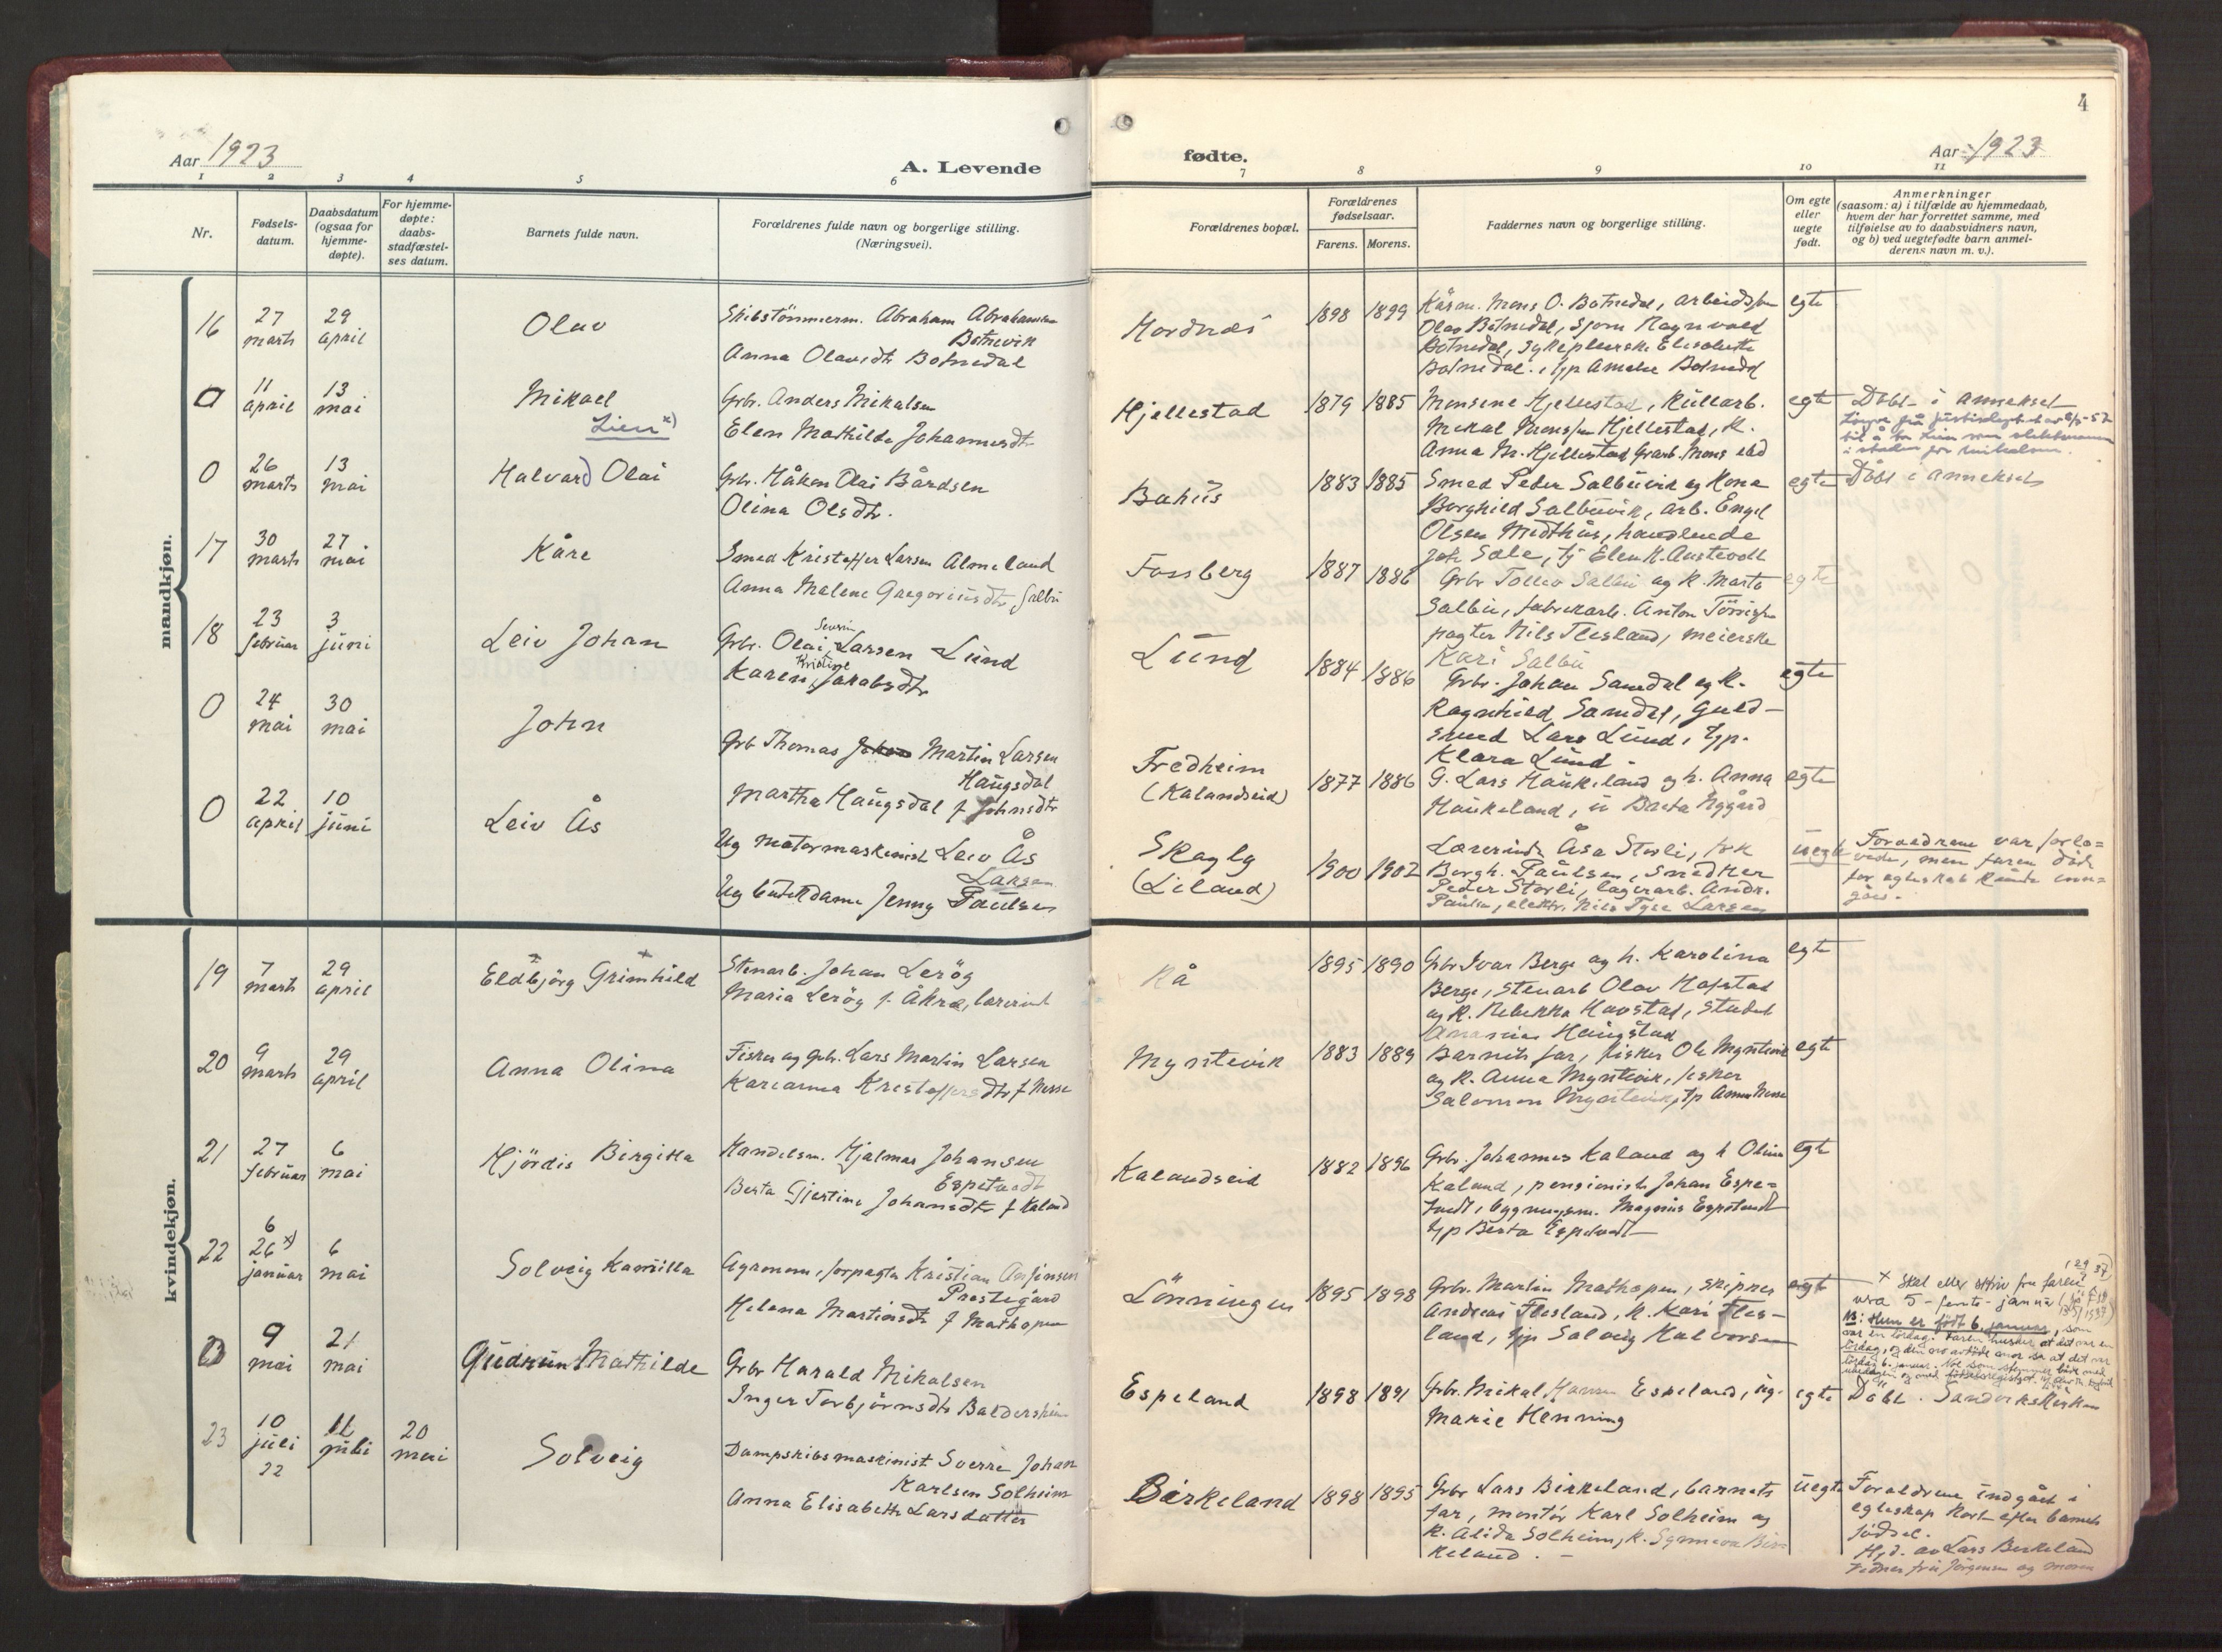 4
Aar 1923
A. Levende
fødte.
Aar 1923
1 2 3 4 5 6 7 8 9 10 11
Nr.
Fødsels-
datum.
Daabsdatum
(ogsaa for
hjemme-
døpte).
For hjemme-
døpte:
daabs-
stadfæstel-
ses datum.
Barnets fulde navn.
Forældrenes fulde navn og borgerlige stilling.
(Næringsvei).
Forældrenes bopæl.
Forældrenes
fødselsaar.
Farens. Morens.
Faddernes navn og borgerlige stilling.
Om egte
eller
uegte
født.
Anmerkninger
(saasom: a) i tilfælde av hjemmedaab,
hvem der har forrettet samme, med
tilføielse av to daabsvidners navn,
og b) ved uegtefødte barn anmel-
derens navn m. v.).
mandkjøn.
16
27
marts
29
april
Olav
Skibstömmerm. Abraham Abrahamsen
Botnevik
Anna Olavsdtr Botnedal
Hordnæs
1898 1899
Mons O. Botnedal, arbeidsfm
Olav Botnedal, Ragnvald
Botnedal, sykepleierske Elisabeth
Botnedal, tjp Amalie Botnedal
egte
0
11
april
13
mai
Mikael
Lien x)
Grbr. Anders Mikalsen
Elen Mathilde Johannesdtr
Hjellestad
1879 1885
Monsine Hjellestad, Küllarb.
Mikal Monssen Hjellestad, K.
Anna M. Hjellestad Grarb. Mons
egte
Döbt i annekset
til å ta Lien som
0
26
marts
13
mai
Halvard Olai
Grbr. Håkon Olai Bårdsen
Olina Olsdtr.
Bahüs
1883 1885
Smed Peder Salbüvik og Kona
Borghild Salbüvik, arb. Engel
Olsen Midthüs, handlende
Joh Sæle, tj Elen K. Austevoll
egte
Döbt i annekset
17
30
marts
27
mai
Kåre
Smed Kristoffer Larsen Almeland
Anna Malene Gregoriüsdtr, Salbü
Fossberg
1887 1886
Grbr Tollev Salbü og K. Marta
Salbü, fabrikarb. Anton
pagter Nils Flesland, meierske
Kari Salbü
egte
18
23
februar
3
jüni
Leiv Johan
Severin
Grbr. Olai Larsen Lünd
Kristine
Karen Jakobsdtr
Lünd
1884 1886
Grbr. Johan Samdal og K.
Ragnhild Samdal, Guld-
smed Lars Lünd, tjp.
Klara Lünd -
egte
0
24
mai
30
mai
John
Grb Thomas Martin Larsen
Haügsdal
Martha Haügsdal f Johnsdtr
Fredheim
(Kalandseid)
1877 1886
G. Lars Haükeland og h. Anna
Haükeland, ü Berta Nygård
egte
0
22
april
10
jüni
Leiv Ås
Ug motormaskinist Leiv Ås
Larsen
Ug Jenny Paülsen
Skagly
(Liland)
1900 1902
Lærerinde Åsa Storli, frk
Borgh. Paülsen, Snedker
Peder Storli, lagerarb. Andr.
Paülsen, elektr. Nils Larsen
üegte
Forældrene var forlo=
vede, men faren døde
før egteskab künde inn-
gåes.
kvindekjøn.
19
7
marts
29
april
Eldbjörg Grimhild
Stenarb. Johan Lerög
Maria Lerög f. Åkre, lærerind
Rå
1895 1890
Grbr Ivar Berge og h. Karolina
Berge, Stenarb Olav Hofstad
og K. Rebekka Havstad, student
Ananias Haügstad
egte
20
9
marts
29
april
Anna Olina
Fisker og grbr. Lars Martin Larsen
Karianna Kristoffersdtr f Nesse
Myntevik
1883 1889
Barnets far, fisker Ole Myntevik
og K. Anna Myntevik, fisker
Salomon Myntevik, tjp Anna Nesse
egte
21
27
februar
6
mai
Hjördis Birgitta
Handelsm. Hjalmar Johansen
Espetvedt
Berta Gjertine Johansdtr f Kaland
Kalandseid
1882 1896
Grbr. Johannes Kaland og h Olina
Kaland, pensionist Johan Espe=
tvedt, bygningsm. Magnüs Espetvedt
tjp Berta Espetvedt
egte
22
6
26 x)
januar
6
mai
Solveig Kamilla
Agronom, forpagter Kristian Ansjensen
Prestegård
Helena Martinsdtr f Mathopen
Lönningen
1895 1898
Grbr. Martin Mathopen, skipper
Andreas Flesland, K. Kari Fles-
land, tjp Solveig Halvorsen
egte
x skal efter skriv fra faren
vera 5 - femte - januar
NB: Hun er født 6. januar, som
var en lördag. Faren husker at det var en
0
9
mai
21
mai
Güdrün Mathilde
Grbr Harald Mikalsen
Inger Torbjörnsdtr Baldersheim
Espeland
1898 1891
Grbr. Mikal Hansen Espeland, üg.
Marie Henning
egte
Döbt i Sandvikskirken
23
10
jüli
22
11
jüli
20
mai
Solveig
Dampskibsmaskinist Sverre Johan
Karlsen Solheim
Anna Elisabeth Larsdatter
Birkeland
1898 1895
Grbr Lars Birkeland, barnets
far, montör Karl Solheim og
K. Alida Solheim, K. Synneva Bir-
keland. -
üegte
Forældrene indgået i
egteskap kort efter barnets
födsel.
Hjd. av Lars Birkeland
Vidner frü Jörgensen og moren